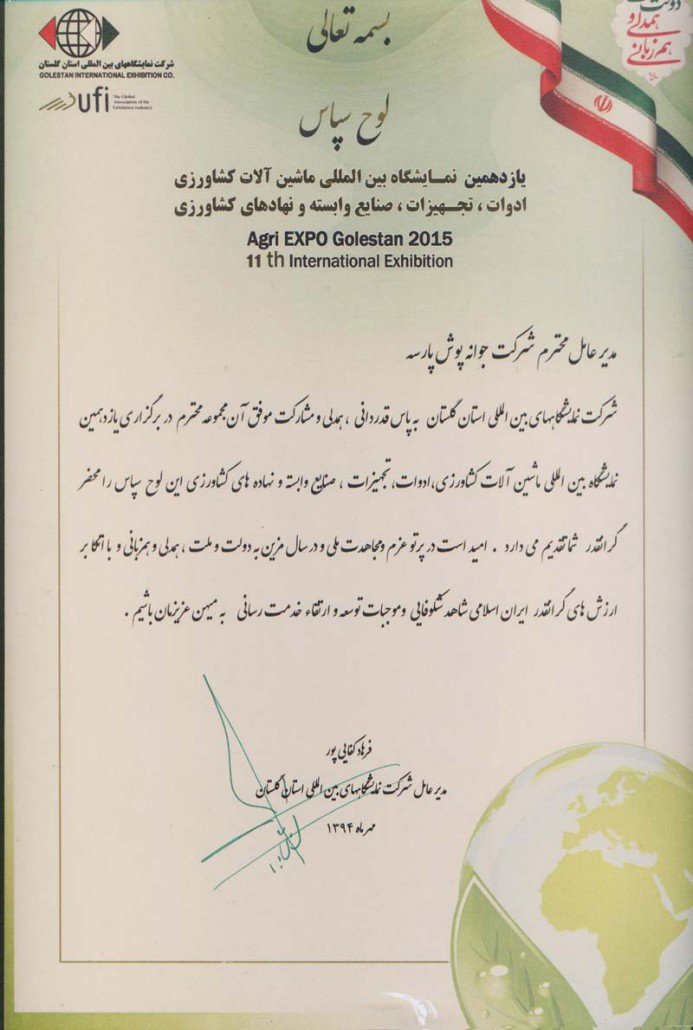 بسمه تعالی
دولت
همدلی و
همزبانی
شرکت نمایشگاههای بین المللی استان گلستان
GOLESTAN INTERNATIONAL EXHIBITION CO.
ufi
The Global
Association of the
Exhibition Industry
لوح سپاس
یازدهمین نمـایشگاه بین المللی ماشین آلات کشاورزی
ادوات ، تجـهیزات ، صنایع وابسته و نهادهای کشاورزی
Agri EXPO Golestan 2015
11 th International Exhibition
مدیر عامل محترم شرکت جوانه پوش پارسه
شرکت نمایشگاههای بین المللی استان گلستان به پاس قدردانی ، همدلی و مشارکت موفق آن مجموعه محترم در برگزاری یازدهمین
نمایشگاه بین المللی ماشین آلات کشاورزی،ادوات، تجهیزات ، صنایع وابسته و نهاده های کشاورزی این لوح سپاس را محضر
گرانقدر شما تقدیم می دارد . امید است در پرتو عزم و مجاهدت ملی و در سال مزین به دولت و ملت ، همدلی و همزبانی و با اتکا بر
ارزش های گرانقدر ایران اسلامی شاهد شکوفایی و موجبات توسعه و ارتقاء خدمت رسانی به میهن عزیزمان باشیم .
فرهاد کفایی پور
مدیر عامل شرکت نمایشگاههای بین المللی استان گلستان
مهر ماه ۱۳۹۴